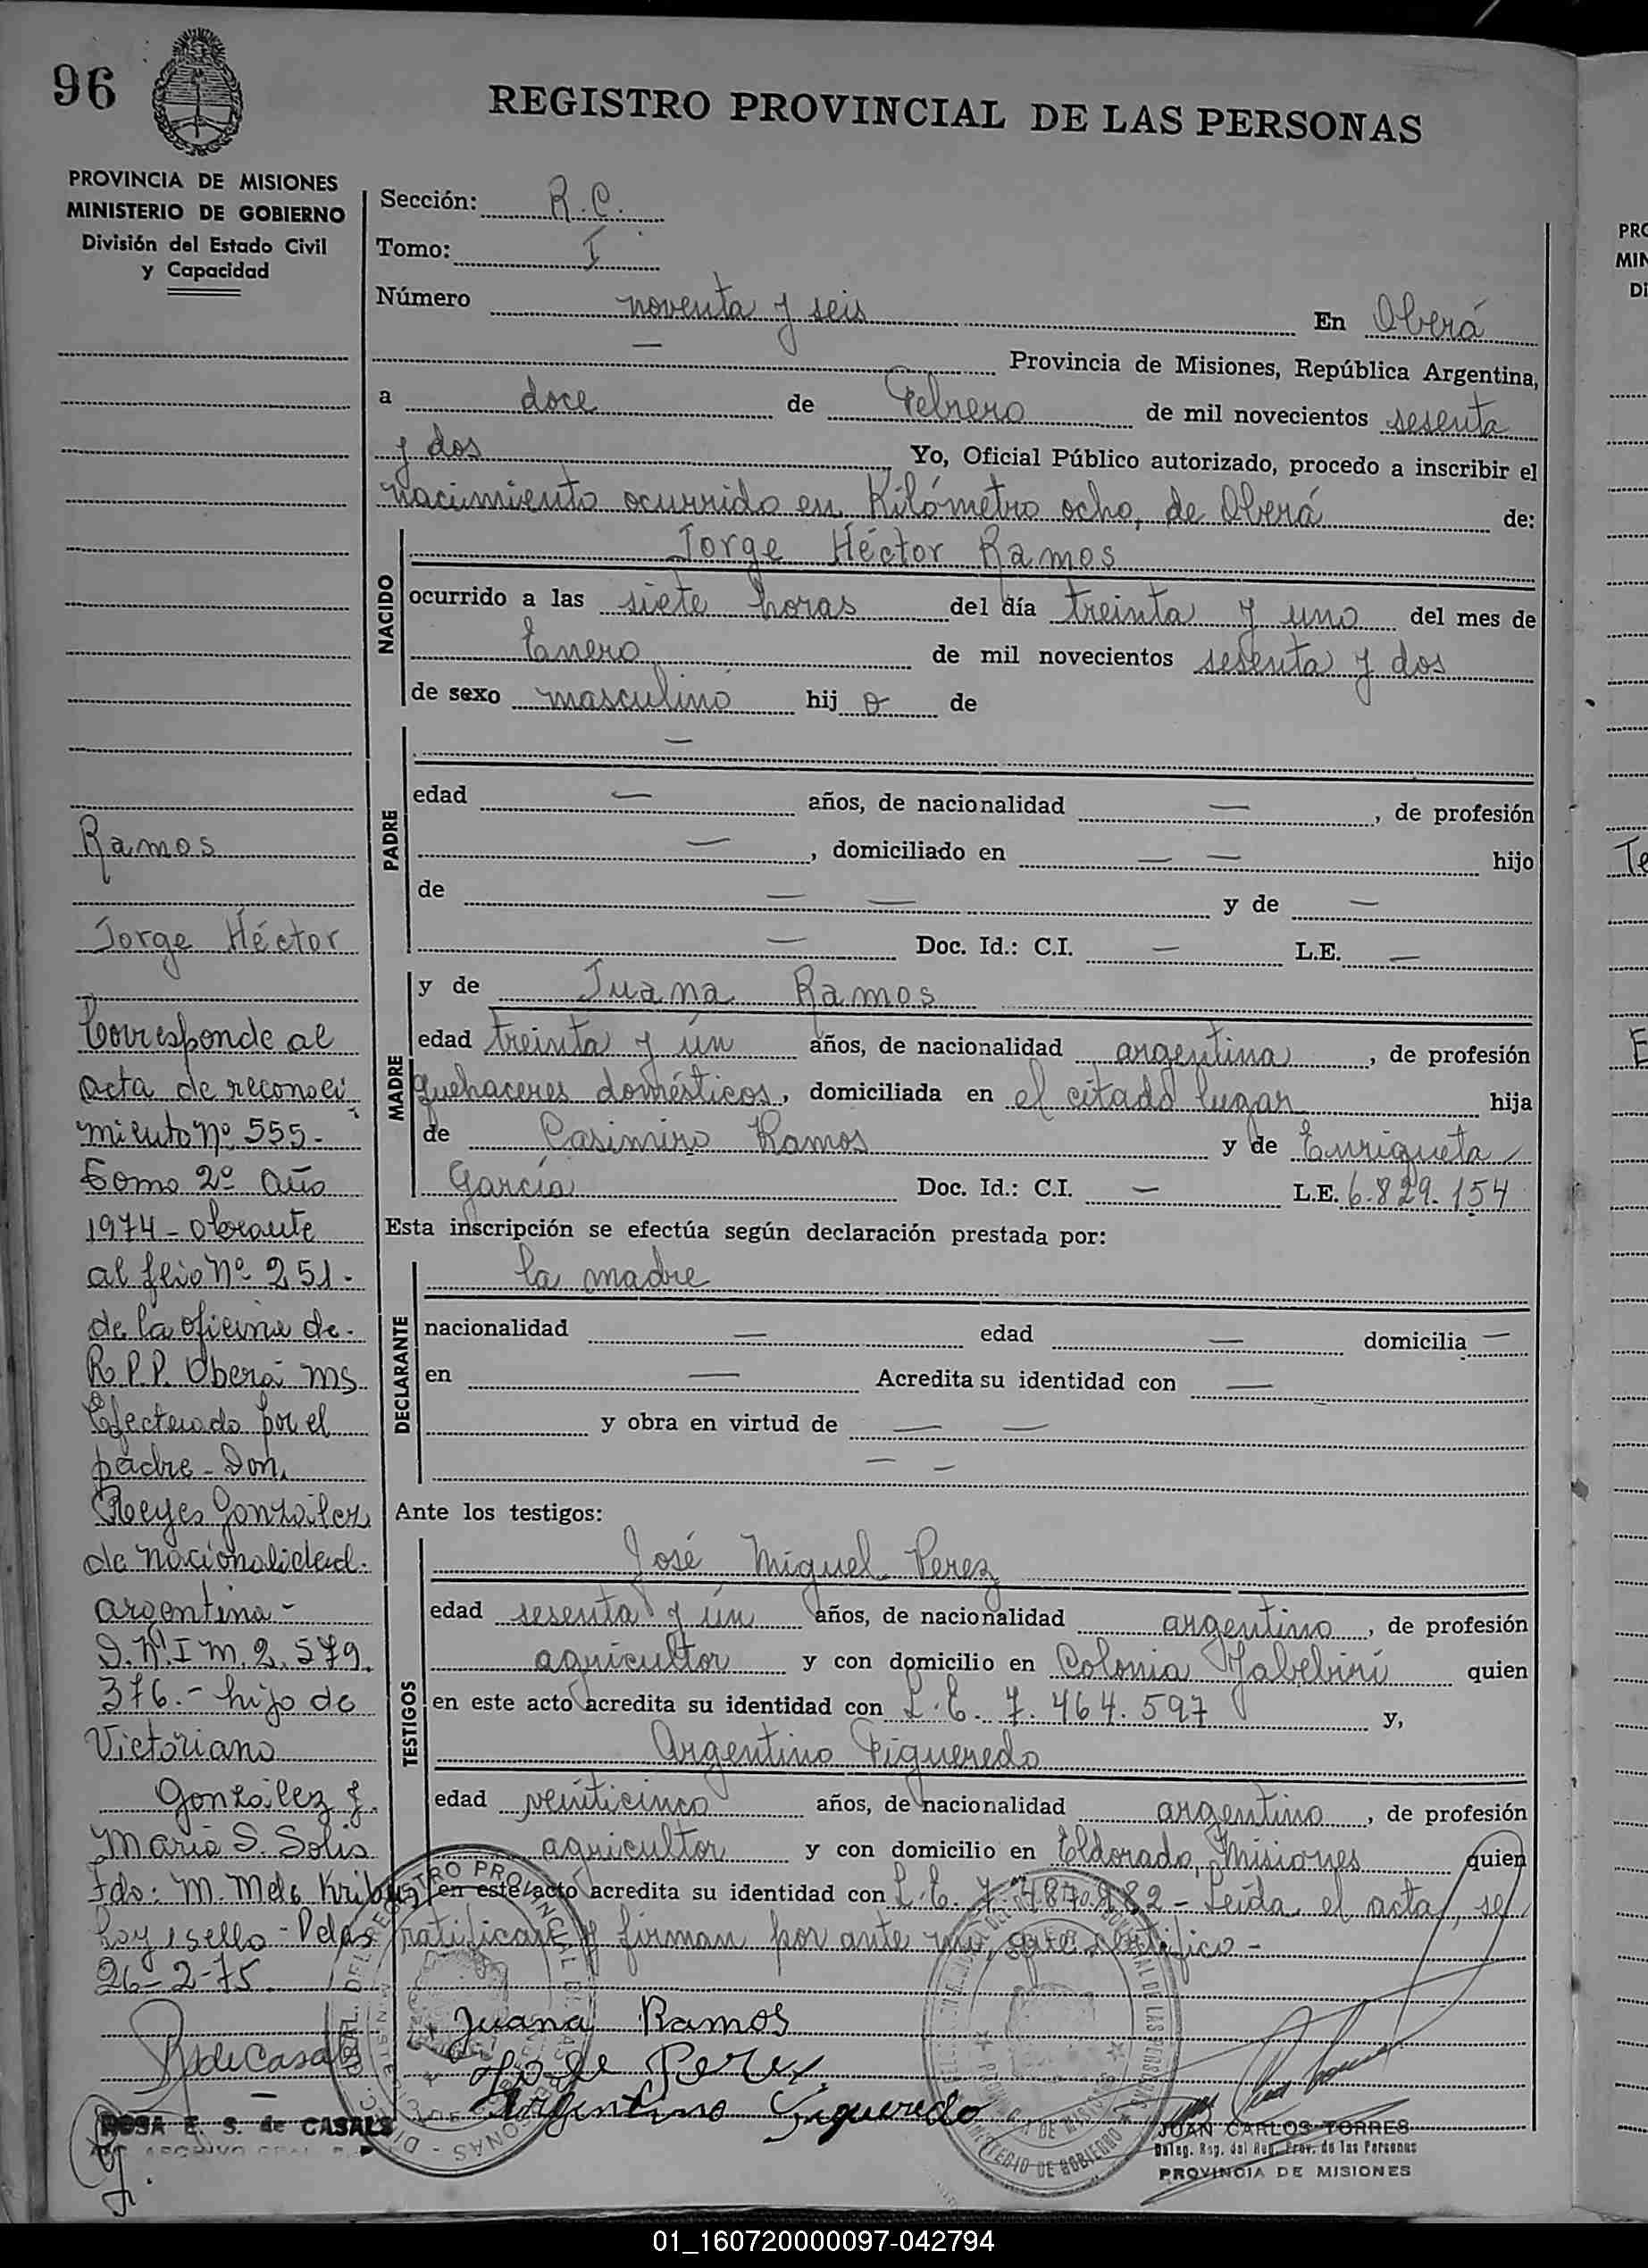 96
REGISTRO PROVINCIAL DE LAS PERSONAS
PROVINCIA DE MISIONES
MINISTERIO DE GOBIERNO
División del Estado Civil
y Capacidad
Sección: R.C.
Tomo: I
Número noventa y seis En Oberá
Provincia de Misiones, República Argentina,
a doce de Febrero de mil novecientos sesenta
y dos Yo, Oficial Público autorizado, procedo a inscribir el
nacimiento ocurrido en Kilómetro ocho, de Oberá de:
NACIDO
Jorge Héctor Ramos
ocurrido a las siete horas del día treinta y uno del mes de
Enero de mil novecientos sesenta y dos
de sexo masculino hij o de
PADRE
—
edad — años, de nacionalidad — , de profesión
— , domiciliado en — — hijo
de — — y de —
— Doc. Id.: C.I. — L.E. —
MADRE
y de Juana Ramos
edad treinta y ún años, de nacionalidad argentina , de profesión
quehaceres domésticos, domiciliada en el citado lugar hija
de Casimiro Ramos y de Enriqueta
García Doc. Id.: C.I. — L.E. 6.829.154
Esta inscripción se efectúa según declaración prestada por:
DECLARANTE
la madre
nacionalidad — edad — domicilia —
en — Acredita su identidad con —
y obra en virtud de — —
— —
Ante los testigos:
TESTIGOS
José Miguel Perez
edad sesenta y ún años, de nacionalidad argentino , de profesión
agricultor y con domicilio en Colonia Yabebirí quien
en este acto acredita su identidad con L.E. 7.464.597 y,
Argentino Figueredo
edad veinticinco años, de nacionalidad argentino , de profesión
agricultor y con domicilio en Eldorado, Misiones quien
en este acto acredita su identidad con L.E. 7.487.982 - Leída el acta, se
ratifican y firman por ante mí, que certifico -
Juana Ramos
José Perez
Argentino Figueredo
JUAN CARLOS TORRES
Deleg. Reg. del Reg. Prov. de las Personas
PROVINCIA DE MISIONES
Ramos
Jorge Héctor
Corresponde al
acta de reconoci
miento nº 555-
Tomo 2º año
1974 - obrante
al folio nº 251-
de la oficina de-
R.P.P. Oberá Ms.
Efectuado por el
padre - Don
Reyes González
de nacionalidad-
argentina -
D.N.I M. 2.579.
376.- hijo de
Victoriano
González y
Maria S. Solis
Fdo: M. Melo
Hay sello -
26-2-75
ROSA E. S. de CASALS
01_160720000097-042794